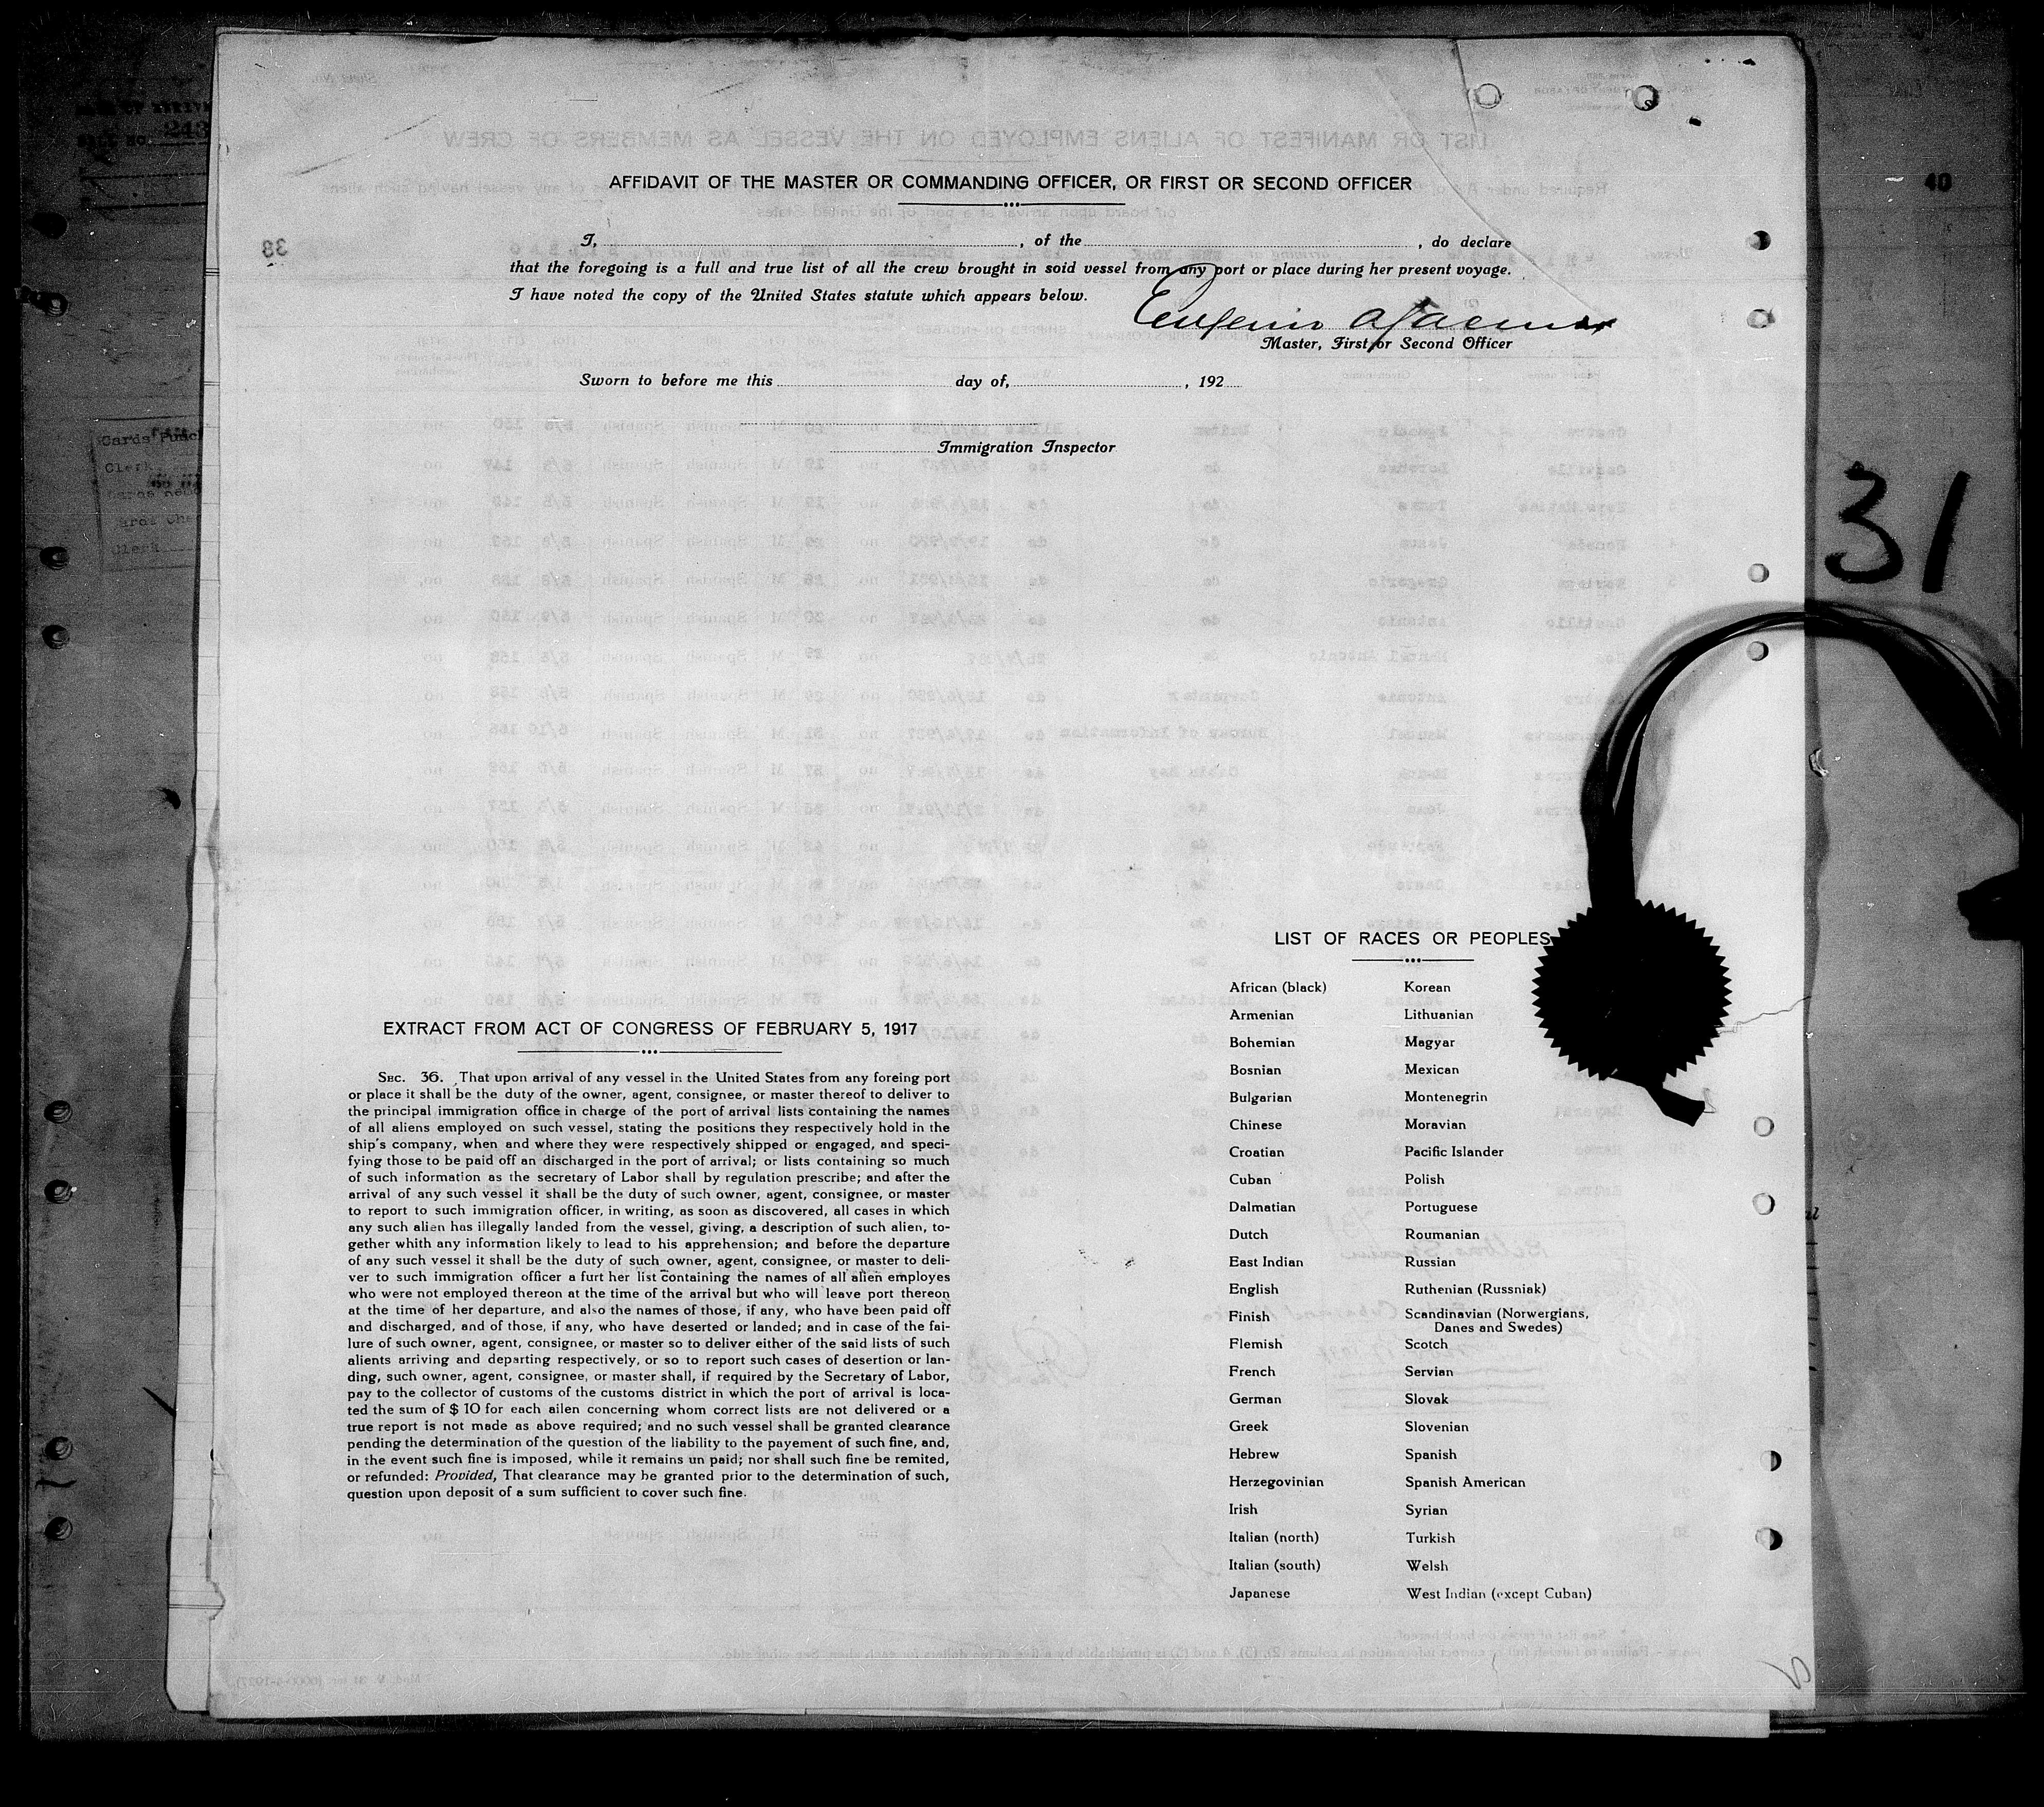 AFFIDAVIT OF THE MASTER OR COMMANDING OFFICER, OR FIRST OR SECOND OFFICER
I, , of the , do declare
that the foregoing is a full and true list of all the crew brought in soid vessel from any port or place during her present voyage.
I have noted the copy of the United States statute which appears below.
Eugenio
Master, First or Second Officer
Sworn to before me this day of, , 192
Immigration Inspector
31
40
38
243
Clerk
Clerk
LIST OF RACES OR PEOPLES
African (black) Korean
Armenian Lithuanian
Bohemian Magyar
Bosnian Mexican
Bulgarian Montenegrin
Chinese Moravian
Croatian Pacific Islander
Cuban Polish
Dalmatian Portuguese
Dutch Roumanian
East Indian Russian
English Ruthenian (Russniak)
Finish Scandinavian (Norwergians,
Danes and Swedes)
Flemish Scotch
French Servian
German Slovak
Greek Slovenian
Hebrew Spanish
Herzegovinian Spanish American
Irish Syrian
Italian (north) Turkish
Italian (south) Welsh
Japanese West Indian (except Cuban)
EXTRACT FROM ACT OF CONGRESS OF FEBRUARY 5, 1917
SEC. 36. That upon arrival of any vessel in the United States from any foreing port
or place it shall be the duty of the owner, agent, consignee, or master thereof to deliver to
the principal immigration office in charge of the port of arrival lists containing the names
of all aliens employed on such vessel, stating the positions they respectively hold in the
ship's company, when and where they were respectively shipped or engaged, and speci-
fying those to be paid off an discharged in the port of arrival; or lists containing so much
of such information as the secretary of Labor shall by regulation prescribe; and after the
arrival of any such vessel it shall be the duty of such owner, agent, consignee, or master
to report to such immigration officer, in writing, as soon as discovered, all cases in which
any such alien has illegally landed from the vessel, giving, a description of such alien, to-
gether whith any information likely to lead to his apprehension; and before the departure
of any such vessel it shall be the duty of such owner, agent, consignee, or master to deli-
ver to such immigration officer a furt her list containing the names of all alien employes
who were not employed thereon at the time of the arrival but who will leave port thereon
at the time of her departure, and also the names of those, if any, who have been paid off
and discharged, and of those, if any, who have deserted or landed; and in case of the fai-
lure of such owner, agent, consignee, or master so to deliver either of the said lists of such
alients arriving and departing respectively, or so to report such cases of desertion or lan-
ding, such owner, agent, consignee, or master shall, if required by the Secretary of Labor,
pay to the collector of customs of the customs district in which the port of arrival is loca-
ted the sum of $ 10 for each ailen concerning whom correct lists are not delivered or a
true report is not made as above required; and no such vessel shall be granted clearance
pending the determination of the question of the liability to the payement of such fine, and,
in the event such fine is imposed, while it remains un paid; nor shall such fine be remited,
or refunded: Provided, That clearance may be granted prior to the determination of such,
question upon deposit of a sum sufficient to cover such fine.